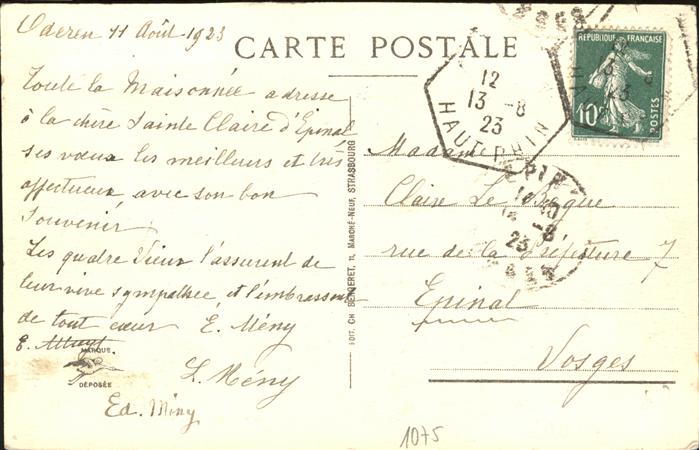 Oderen 11 Août 1923
CARTE POSTALE
Toute la Maisonnée adresse
à la chère Sainte Claire d'Epinal
ses vœux les meilleurs et très
affectueux, avec son bon
souvenir.
Les quatre Vieux l'assurent de
leur vive sympathie, et l'embrassent
de tout cœur E. Mény
E.
L. Mény
Ed. Miny
MARQUE
DÉPOSÉE
EDIT. CH. BERGERET, 11, MARCHÉ-NEUF, STRASBOURG
RÉPUBLIQUE FRANÇAISE
10c
POSTES
12
13 -8
23
HAUT RHIN
Madame
Claire Le Bègue
rue de la Préfecture 7
Epinal
Vosges
-8
23
1075